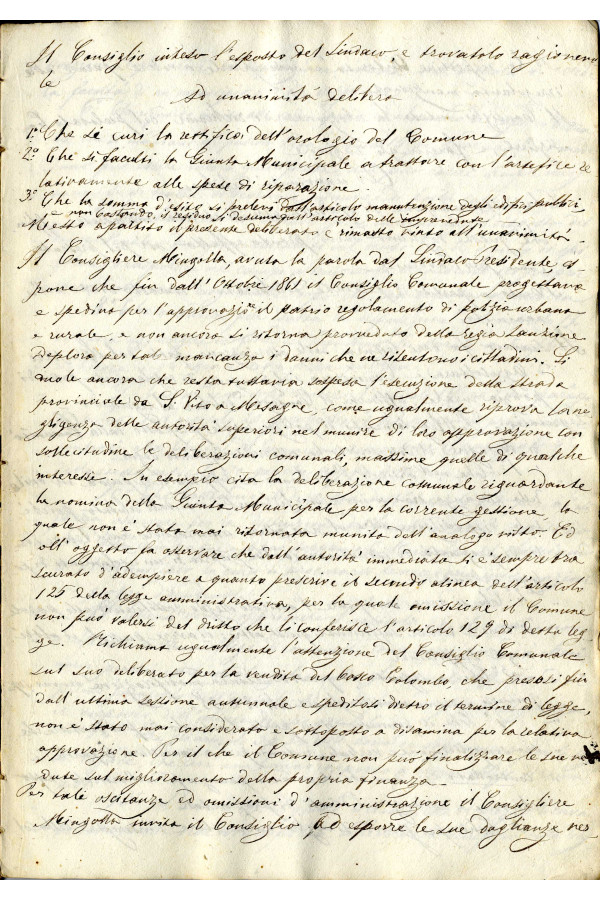 Il Consiglio inteso l'esposto del Sindaco, e trovatolo ragionevo
le
Ad unanimità delibera
1º Che si curi la rettifica dell'orologio del Comune
2º Che si facultà la Giunta Municipale a trattare con l'artefice re
lativamente alle spese di riparazione.
3º Che la somma d'esito si prelevi dall'articolo manutenzione degli edifici pubblici,
e non bastando, il residuo si desuma dall'articolo delle impreviste
Messo a partito il presente deliberato è rimasto vinto all'unanimità
Il Consigliere Mingolla, avuta la parola dal Sindaco Presidente, es
pone che fin dall'Ottobre 1861 il Consiglio Comunale progettava
e spediva per l'approvazione il patrio regolamento di polizia urbana
e rurale, e non ancora si ritorna provveduto della regia Sanzione
deplora per tal mancanza i danni che ne risentono i cittadini. Si
duole ancora che resta tuttavia sospesa l'esecuzione della strada
provinciale da S. Vito a Mesagne, come ugualmente riprova la ne
gligenza delle autorità superiori nel munire di loro approvazione con
sollecitudine le deliberazioni comunali, massime quelle di qualche
interesse. In esempio cita la deliberazione comunale riguardante
la nomina della Giunta Municipale per la corrente gestione, la
quale non è stata mai ritornata munita dell'analogo visto. Ed
all'oggetto fa osservare che dall'autorità immediata si è sempre tra
scurato d'adempiere a quanto prescrive il secondo alinea dell'articolo
125 della legge amministrativa, per la quale omissione il Comune
non può valersi del dritto che li conferisce l'articolo 129 di detta leg
ge. Richiama ugualmente l'attenzione del Consiglio Comunale
sul suo deliberato per la vendita del bosco Colombo, che presosi fin
dall'ultima sessione autunnale e speditosi dietro il termine di legge,
non è stato mai considerato e sottoposto a disamina per la relativa
approvazione. Per il che il Comune non può finalizzare le sue ve
dute sul miglioramento della propria finanza.
Per tale oscitanze ed omissioni d'amministrazione il Consigliere
Mingolla invita il Consiglio ad esporre le sue doglianze nes